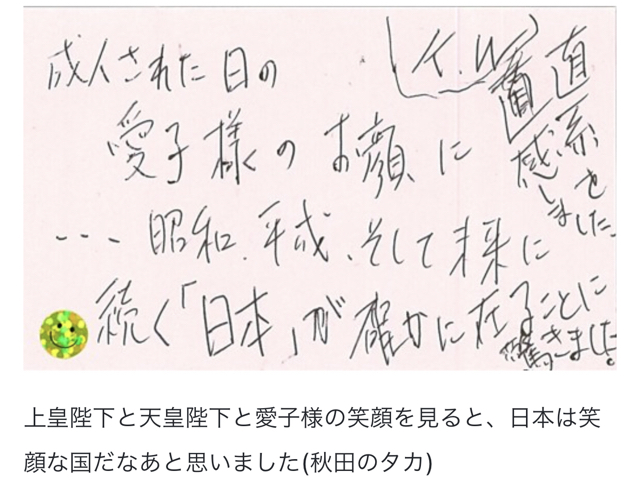 成人された日の
愛子様のお顔に
直系を
感しました
... 昭和、平成、そして未来に
続く「日本」が確かに在ることに
驚きました。
上皇陛下と天皇陛下と愛子様の笑顔を見ると、日本は笑
顔な国だなあと思いました(秋田のタカ)